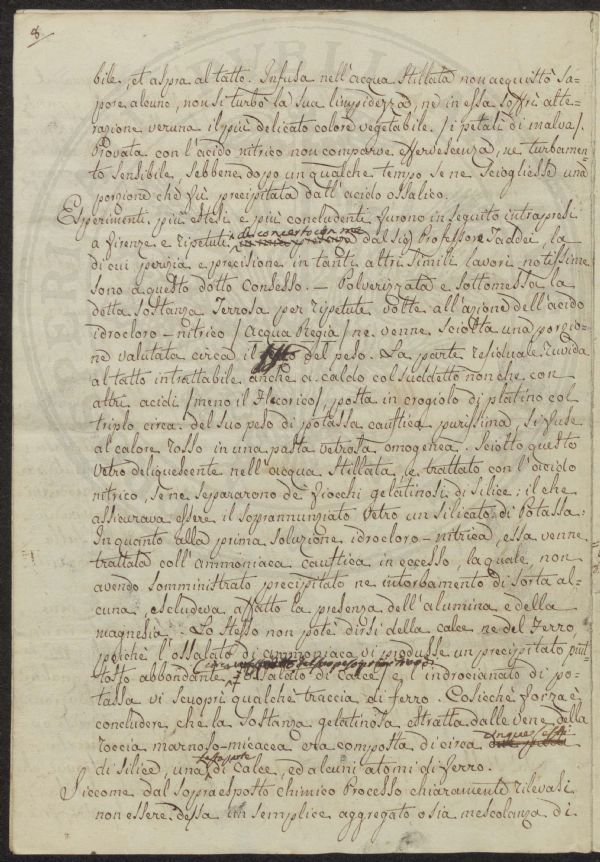 8
bile, et aspra al tatto. Infusa nell'acqua stillata non acquistò sa=
pore alcuno, non si turbò la sua limpidezza, ne in essa soffrì alte=
razione veruna il più delicato colore vegetabile /i petali di malva/.
Provata con l'acido nitrico non comparve effervescenza, ne turbamen
to sensibile, sebbene dopo un qualche tempo se ne sciogliesse una
porzione che fù precipitata dall'acido ossalico.
Esperimenti più estesi e più concludenti furono in seguito intrapresi
di concerto con me
a Firenze e ripetuti dal Sig. Professore Taddei, la
di cui perizia e precisione in tanti altri simili lavori notissime
sono a questo dotto Consesso. — Polverizzata e sottomessa la
detta sostanza Terrosa per ripetute volte all'azione dell'acido
idrocloro-nitrico /acqua Regia/ ne venne sciolta una porzio=
ne valutata circa il del peso. La parte residuale ruvida
al tatto intrattabile anche a caldo col suddetto non che con
altri acidi /meno il Fluorico/, posta in crogiolo di platino col
triplo circa del suo peso di potassa caustica purissima, si fuse
al calore rosso in una pasta vetrosa omogenea. Sciolto questo
vetro deliquescente nell'acqua stillata, e trattato con l'acido
nitrico, se ne separarono de' fiocchi gelatinosi di Silice; il che
assicurava essere il soprannunziato vetro un silicato di Potassa.
In quanto alla prima soluzione idrocloro-nitrica, essa venne
trattata coll'ammoniaca caustica in eccesso, la quale non
avendo somministrato precipitato ne intorbamento di sorta al=
cuna, escludeva affatto la presenza dell'alumina e della
magnesia. Lo stesso non potè dirsi della calce ne del Ferro
poichè l'ossalato di ammoniaca vi produsse un precipitato piut
tosto abbondante /ossalato di calce/ e l'indrocianato di po=
tassa vi scuoprì qualche traccia di ferro. Cosicchè forza è
concludere che la sostanza gelatinosa estratta dalle vene della
cinque sesti
roccia marnoso-micacea era composta di circa
sesta parte
di silice, una di calce, ed alcuni atomi di ferro.
Siccome dal sopraesposto chimico Processo chiaramente rilevasi
non essere dessa un semplice aggregato o sia mescolanza di